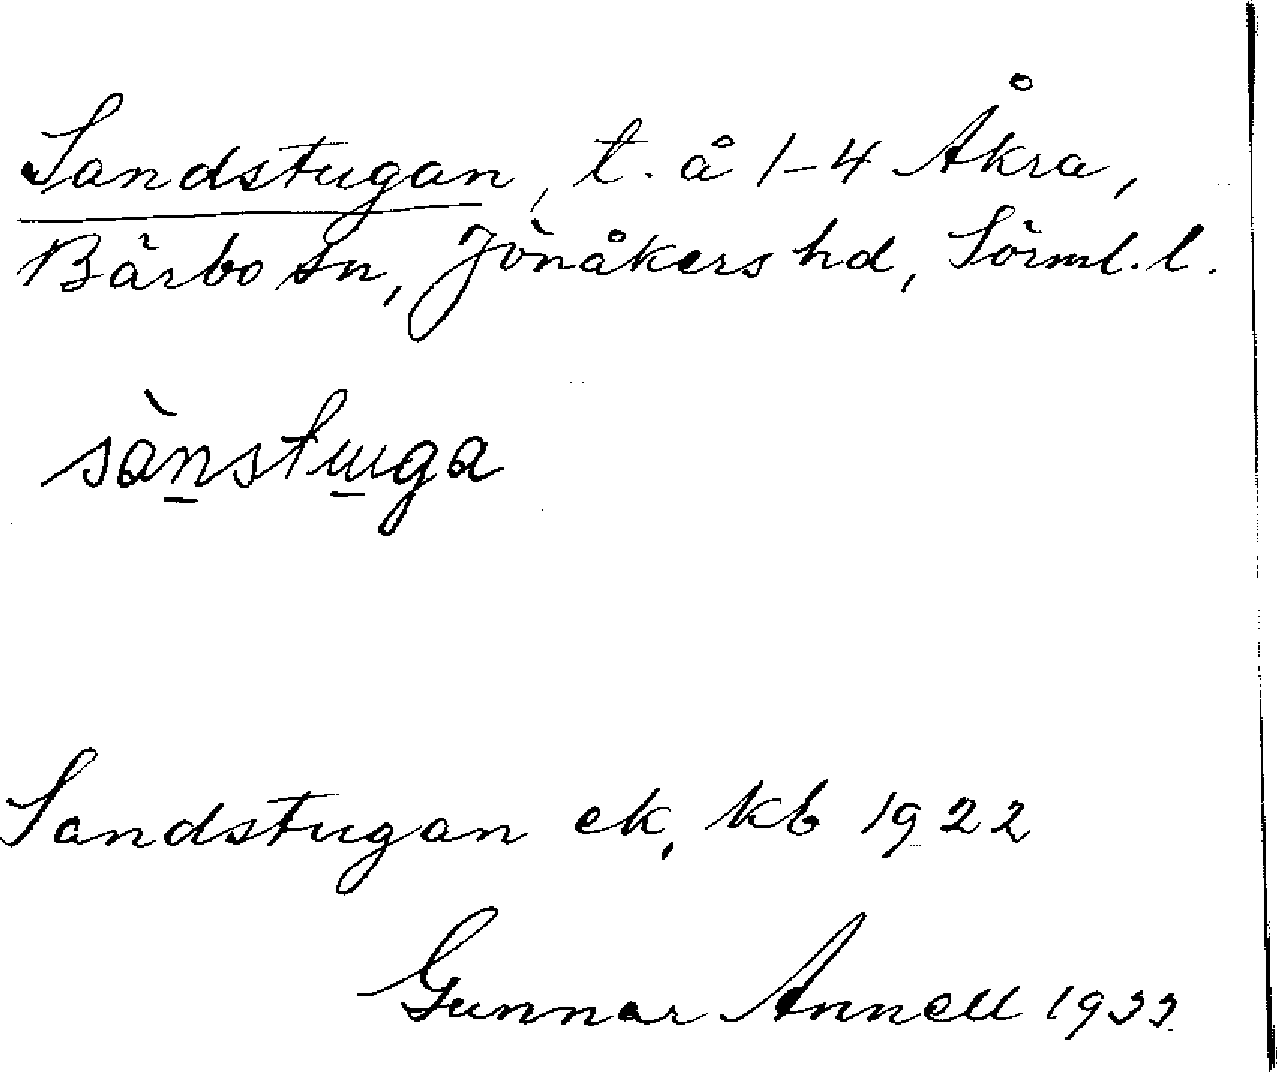 Sandstugan, t. å 1-4 Åkra,
Bärbo sn, Jönåkers hd, Sörml. l.
sànstɯga
Sandstugan ek, kb 1922
Gunnar Annell 1933